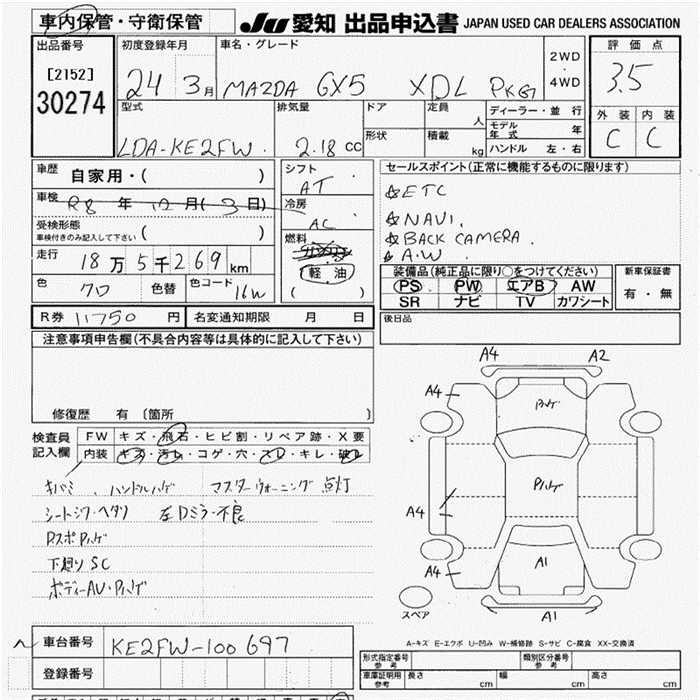 車内保管・守衛保管
JU 愛知 出品申込書 JAPAN USED CAR DEALERS ASSOCIATION
出品番号
[2152]
30274
初度登録年月
24 3月
車名・グレード
MAZDA CX5 XDL PKG
2WD
・
4WD
評価点
3.5
外装 内装
C C
型式
LDA-KE2FW
排気量
2.18 cc
ドア
定員
人
形状
積載
kg
ディーラー・並行
モデル年式 年
ハンドル 左・右
車歴
自家用・( )
車検
R8 年 12 月 (3 日)
受検形態
車検付きのみ記入して下さい ( )
走行
18万5千269 km
色
クロ
色替
色コード
16W
シフト
AT
冷房
AC
燃料
軽油
( )
セールスポイント(正常に機能するものに限ります)
☆ETC
☆NAVI.
☆BACK CAMERA.
☆A.W
装備品(純正品に限り○をつけてください)
PS PW エアB AW
SR ナビ TV カワシート
新車保証書
有・無
R券 11750 円
名変通知期限 月 日
後日品
注意事項申告欄(不具合内容等は具体的に記入して下さい)
修復歴 有 〔箇所 〕
検査員記入欄
FW キズ・飛石・ヒビ割・リペア跡・X要
内装 キズ・汚レ・コゲ・穴・スレ・キレ・破レ
キバミ、ハンドルハゲ マスターウォーニング点灯
シートシワ・ヘタリ 左Dミラー不良
RスポPハゲ
下廻りSC
ボディーAU・Pハゲ
A4 A2
A4
Pハゲ
Pハゲ
A4
A1
A4
A1
スペア
A-キズ E-エクボ U-凹み W-補修跡 S-サビ C-腐食 XX-交換済
車台番号
KE2FW-100697
登録番号
形式指定番号 参考
類別区分番号 参考
車庫証明用 参考
長さ cm
幅 cm
高さ cm